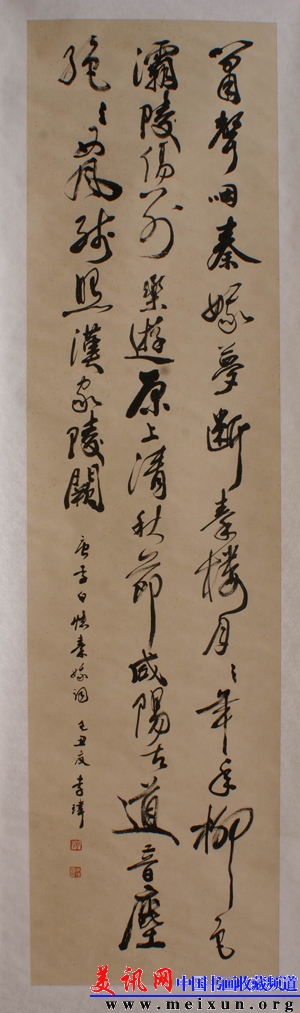 簫聲咽秦娥夢斷秦樓月〻年年柳色
灞陵傷別樂遊原上清秋節咸陽古道音塵
絕〻西風殘照漢家陵闕
唐李白憶秦娥詞 己丑夏李
美讯网 中国书画收藏频道
www.meixun.org